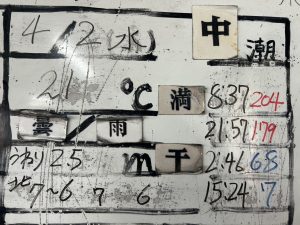 4/2(水) 中潮
21℃ 満 8:37 204
曇/雨 21:57 179
うねり 2.5m 干 2:46 68
北 7~6 7 6 15:24 17